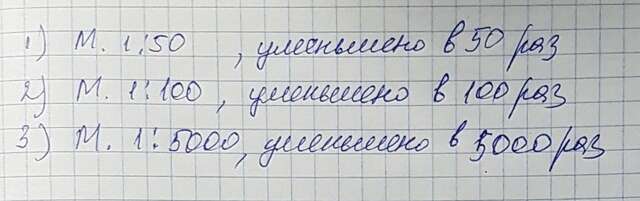 1) М. 1:50 , уменьшено в 50 раз
2) М. 1:100, уменьшено в 100 раз
3) М. 1:5000, уменьшено в 5000 раз